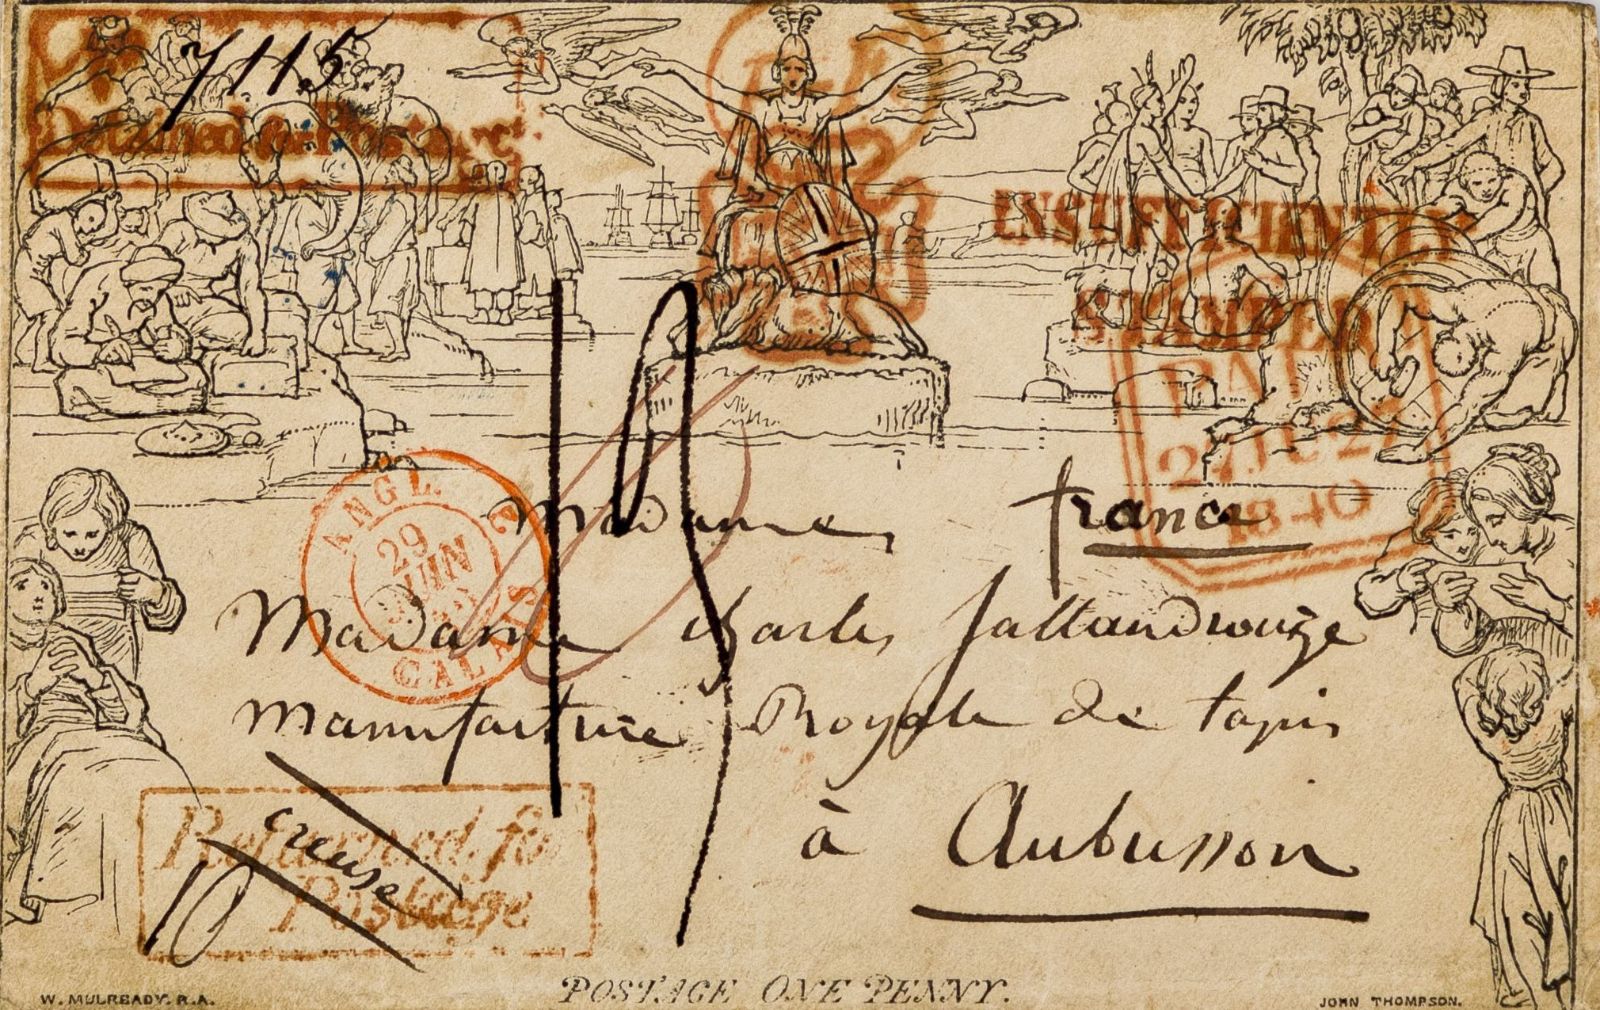 7115
Detained for Postage
INSUFFICIENTLY
STAMPED
PAID
1840
ANGL. 2
29
JUIN
40
CALAIS
Madame, france
Madame Charles Sallandrouze
Manufacture Royale de tapis
à Aubusson
creuse
Returned for
Postage
10
POSTAGE ONE PENNY.
W. MULREADY. R.A.
JOHN THOMPSON.